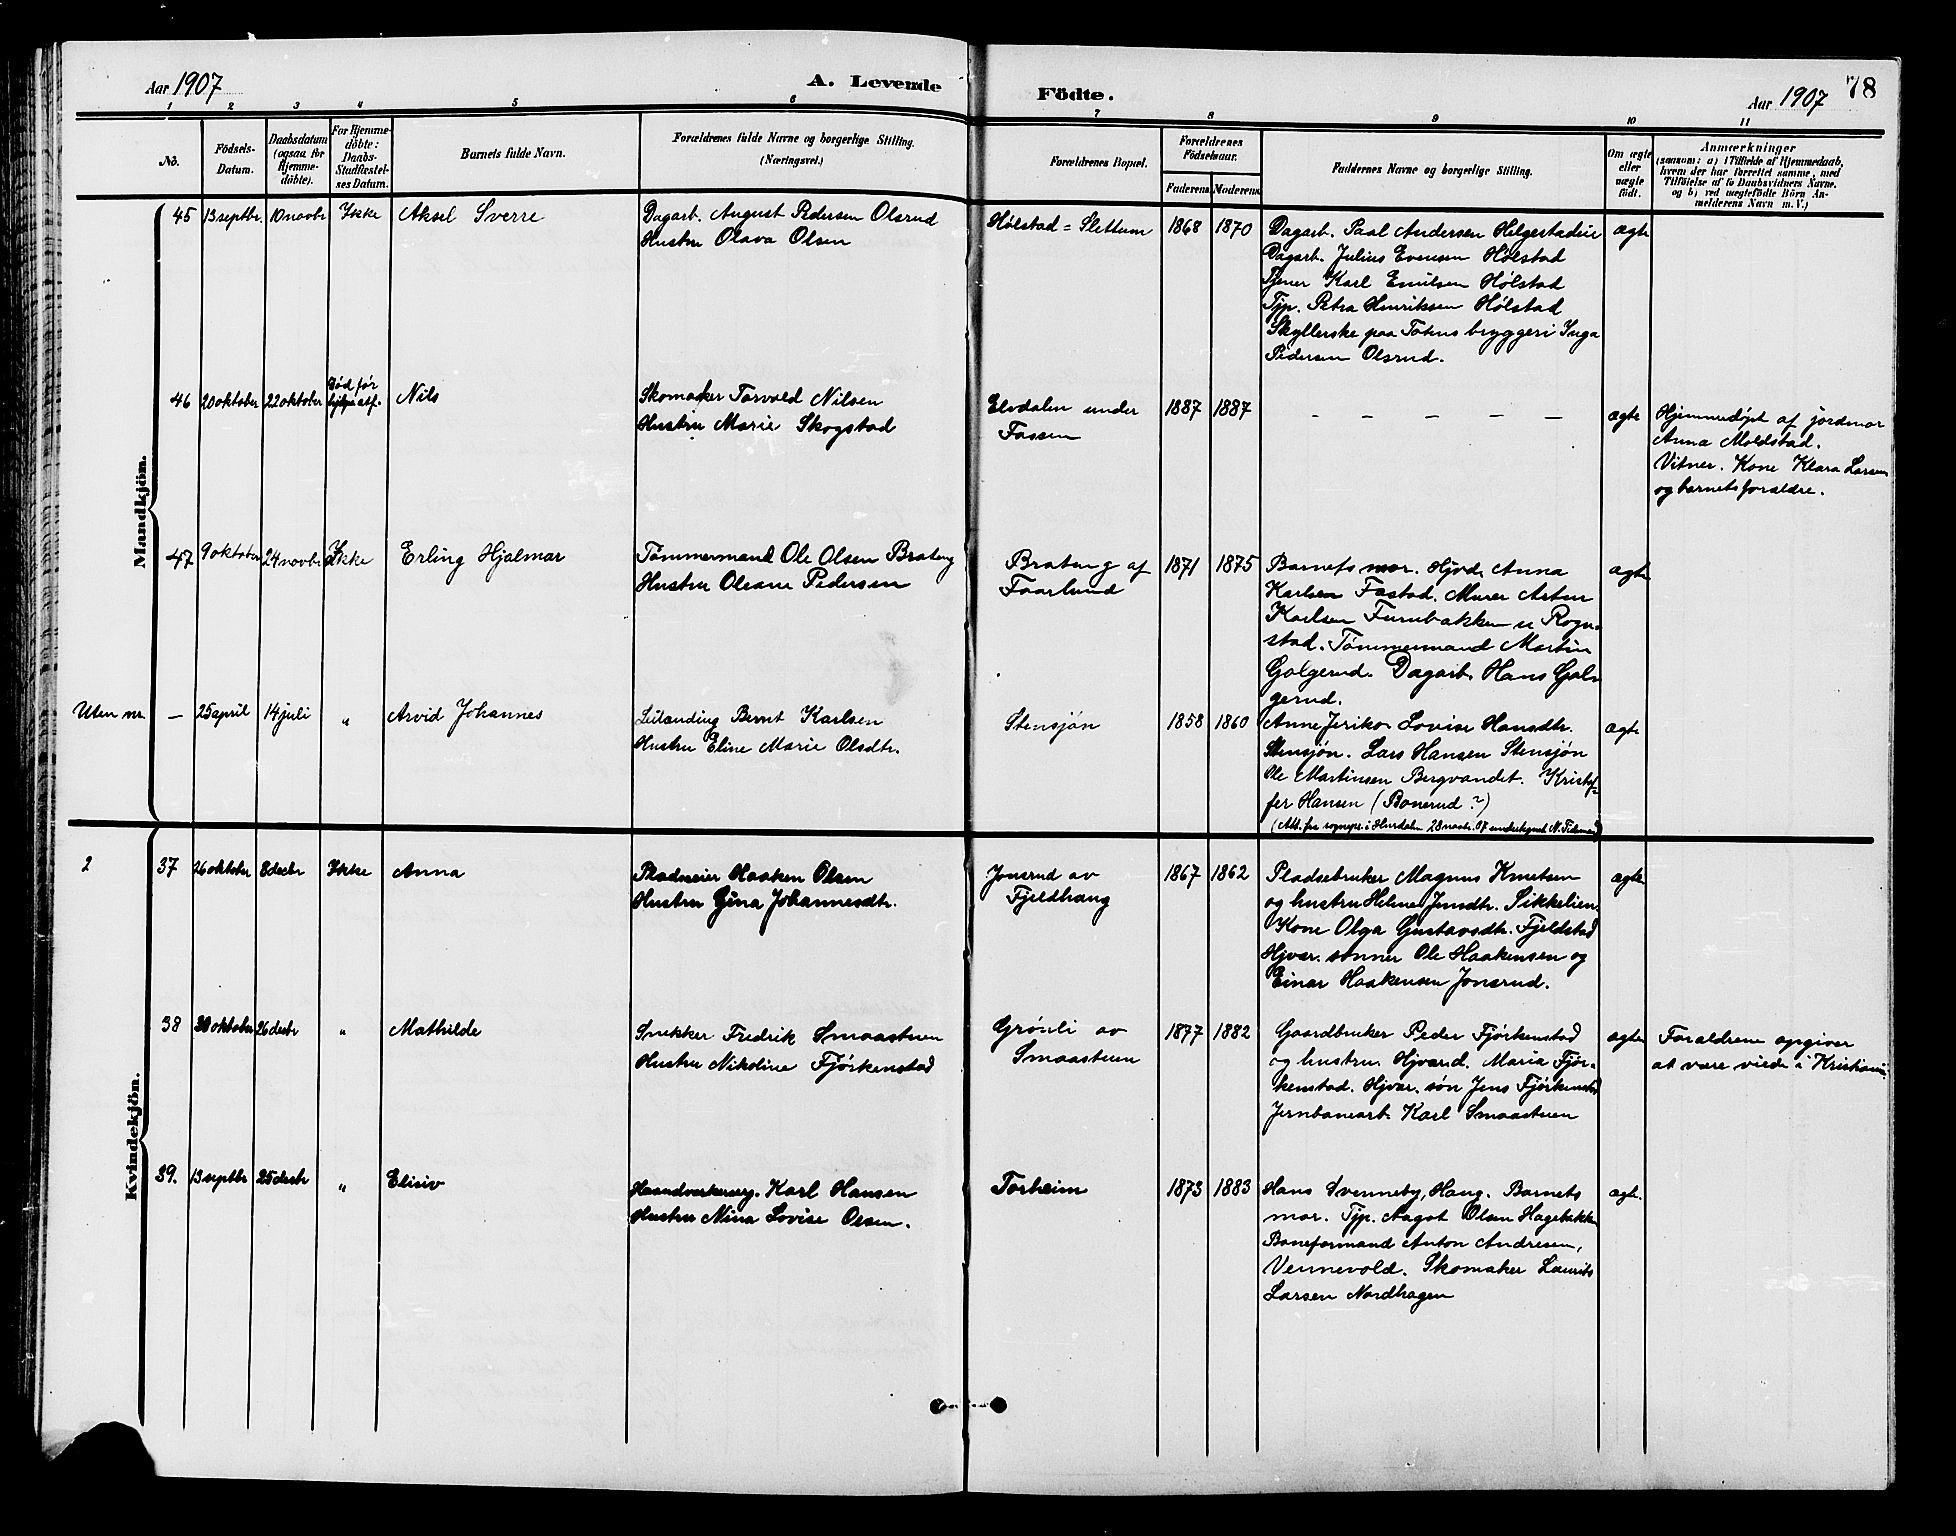 Aar 1907
A. Levende
Födte.
Aar 1907
78
1 2 3 4 5 6 7 8 9 10 11
No.
Födsels-
Datum.
Daabsdatum
(ogsaa for
Hjemme-
döbte).
For Hjemme-
döbte:
Daabs-
Stadfæstel-
ses Datum.
Barnets fulde Navn.
Forældrenes fulde Navne og borgerlige Stilling.
(Næringsvei.)
Forældrenes Bopæl.
Forældrenes
Födselsaar.
Faderens Moderens
Faddernes Navne og borgerlige Stilling.
Om ægte
eller
uægte
födt.
Anmærkninger
(saasom: a) i Tilfælde af Hjemmedaab,
hvem der har forrettet samme, med
Tilföielse af to Daabsvidners Navne,
og b) ved uægtefödte Börn An-
melderens Navn m. V.)
Mandkjön.
45 13 septbr. 10 novbr Ikke Aksel Sverre
Dagarb. August Pedersen Olsrud
Hustru Olava Olsen
Hølstad = Slettum 1868 1870
Dagarb. Paal Andersen Helgestadeie
Dagarb. Julius Evensen Hølstad
Tjener Karl Emilsen Hølstad
Tjp. Petra Henriksen Hølstad
Skyllerske paa Totens bryggeri Inga
Pedersen Olsrud.
ægte
46 20 oktober 22 oktober
Død før
Nils
Skomaker Torvald Nilsen
Hustru Marie Skogstad
Elvdalen under
Fossen
1887 1887
– – – – –
ægte
Hjemmedøpt af jordmor
Anna Moldstad.
Vitner. Kone Klara Larsen
og barnets forældre.
47 9 oktober 24 novbr Ikke Erling Hjalmar
Tømmermand Ole Olsen Brateng
Hustru Oleane Pedersen
Brateng af
Faarlund
1871 1875
Barnets mor. Hjvd. Anna
Karlsen Fastad. Murer Artur
Karlsen Furubakken u Rogn-
stad. Tømmermand Martin
Galgerud. Dagarb. Hans Gal-
gerud.
ægte
Uten nr. – 25 april 14 juli " Arvid Johannes
Leilending Bernt Karlsen
Hustru Eline Marie Olsdtr.
Stensjøn 1858 1860
Anne Jerikor Lovise Hansdtr.
Stensjøn. Lars Hansen Stensjøn
Ole Martinsen Bergvandet. Kristof-
fer Hansen (Bonerud?)
(Att. fra sognepr. i Hurdalen 28 novbr. 07 undertegnet N.
ægte
Kvindekjön.
2 37 26 oktober 8 decbr Ikke Anna
Pladseier Haaken Olsen
Hustru Gina Johannesdtr.
Jonsrud av
Fjeldhaug
1867 1862
Pladsebruker Magnus Knutsen
og hustru Helene Jensdtr. Sikkelien.
Kone Olga Gustavsdtr. Fjeldstad
Hjvær. sønner Ole Haakensen og
Einar Haakensen Jonsrud.
ægte
38 30 oktober 26 decbr " Mathilde
Snekker Fredrik Smaastuen
Hustru Nikoline Fjørkenstad
Grønli av
Smaastuen
1877 1882
Gaardbruker Peder Fjørkenstad
og hustru. Hjværd. Maria Fjør-
kenstad. Hjvær. søn Jens Fjørkenstad
Jernbanearb. Karl Smaastuen
ægte
Forældrene opgiver
at være viede i Kristiania.
39. 13 septbr 25 decbr " Elisiv
Haandverkersvg. Karl Hansen
Hustru Nina Lovise Olsen.
Torheim 1873 1883
Hans Svenneby, Haug. Barnets
mor. Tjp. Aagot Olsen Hagebakken
Baneformand Anton Andresen,
Vennevold. Skomaker Laurits
Larsen Nordhagen
ægte.